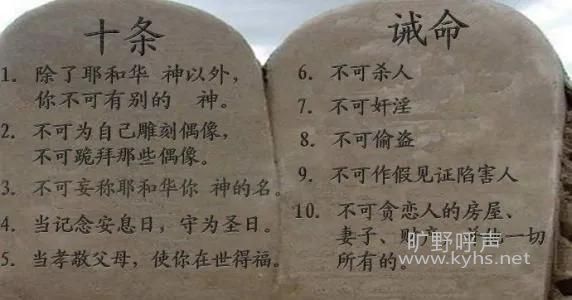 十条
1. 除了耶和华 神以外,
你不可有别的 神。
2. 不可为自己雕刻偶像,
不可跪拜那些偶像。
3. 不可妄称耶和华你 神的名。
4. 当记念安息日,守为圣日。
5. 当孝敬父母,使你在世得福。
诫命
6. 不可杀人
7. 不可奸淫
8. 不可偷盗
9. 不可作假见证陷害人
10. 不可贪恋人的房屋、
妻子、财产 并他一切
所有的。
旷野呼声
www.kyhs.net